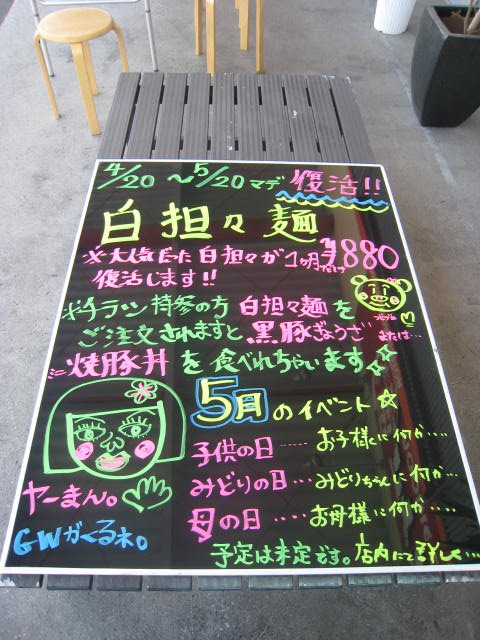 4/20 〜 5/20 マデ 復活!!
白担々麺
※大人気だった白担々が1ヶ月だけ ¥880
復活します!!
※チラシ持参の方 白担々麺を
ご注文されますと 黒豚ぎょうざ または…
ミニ焼豚丼 を食べれちゃいます☆
5月のイベント☆
子供の日 …… お子様に何か‥‥
みどりの日 … みどりちゃんに何か‥‥
母の日 ‥‥ お母様に何か‥‥
ヤーまん。
GWがくるネ。
予定は未定です。店内にて詳しく…